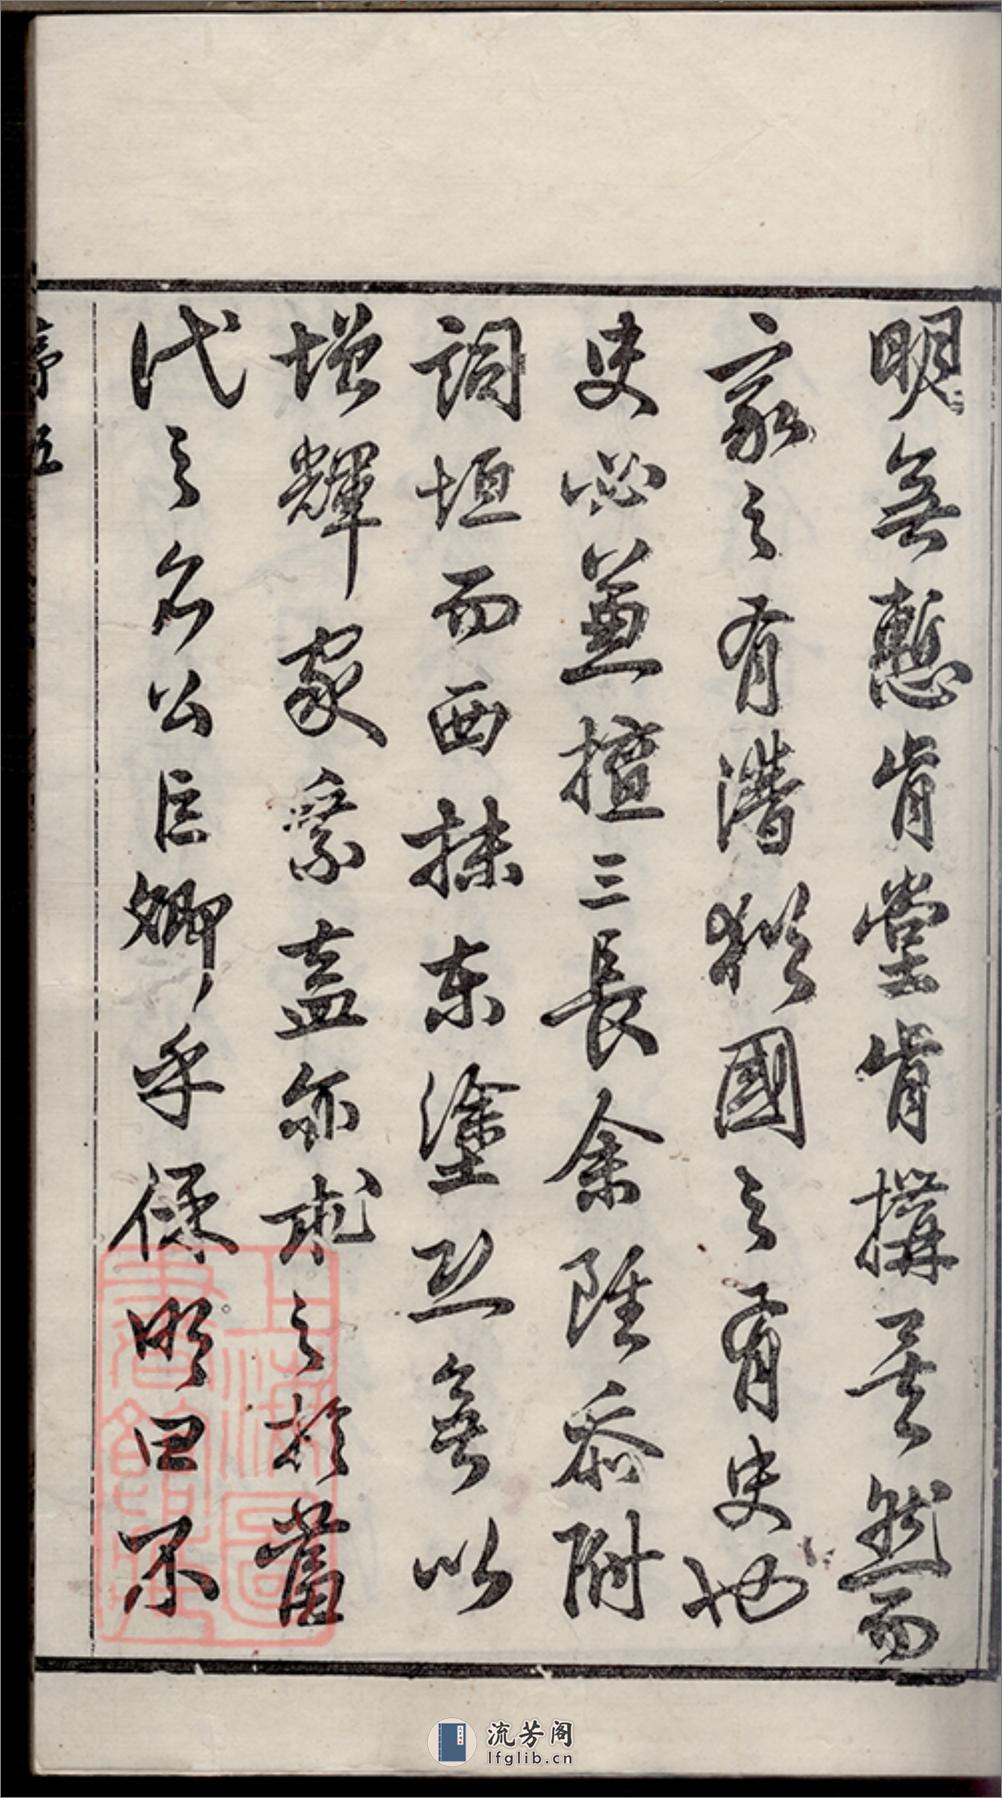 明無慙肯堂肯搆矣然而
家之有濳猶國之有史也
史必兼擅三長余雖忝附
詞垣而西抹東塗及無以
增輝家乘盍亦求之於舊
代之名公巨卿乎侄明曰不
序 五
上海圖書館藏
流芳阁
lfglib.cn